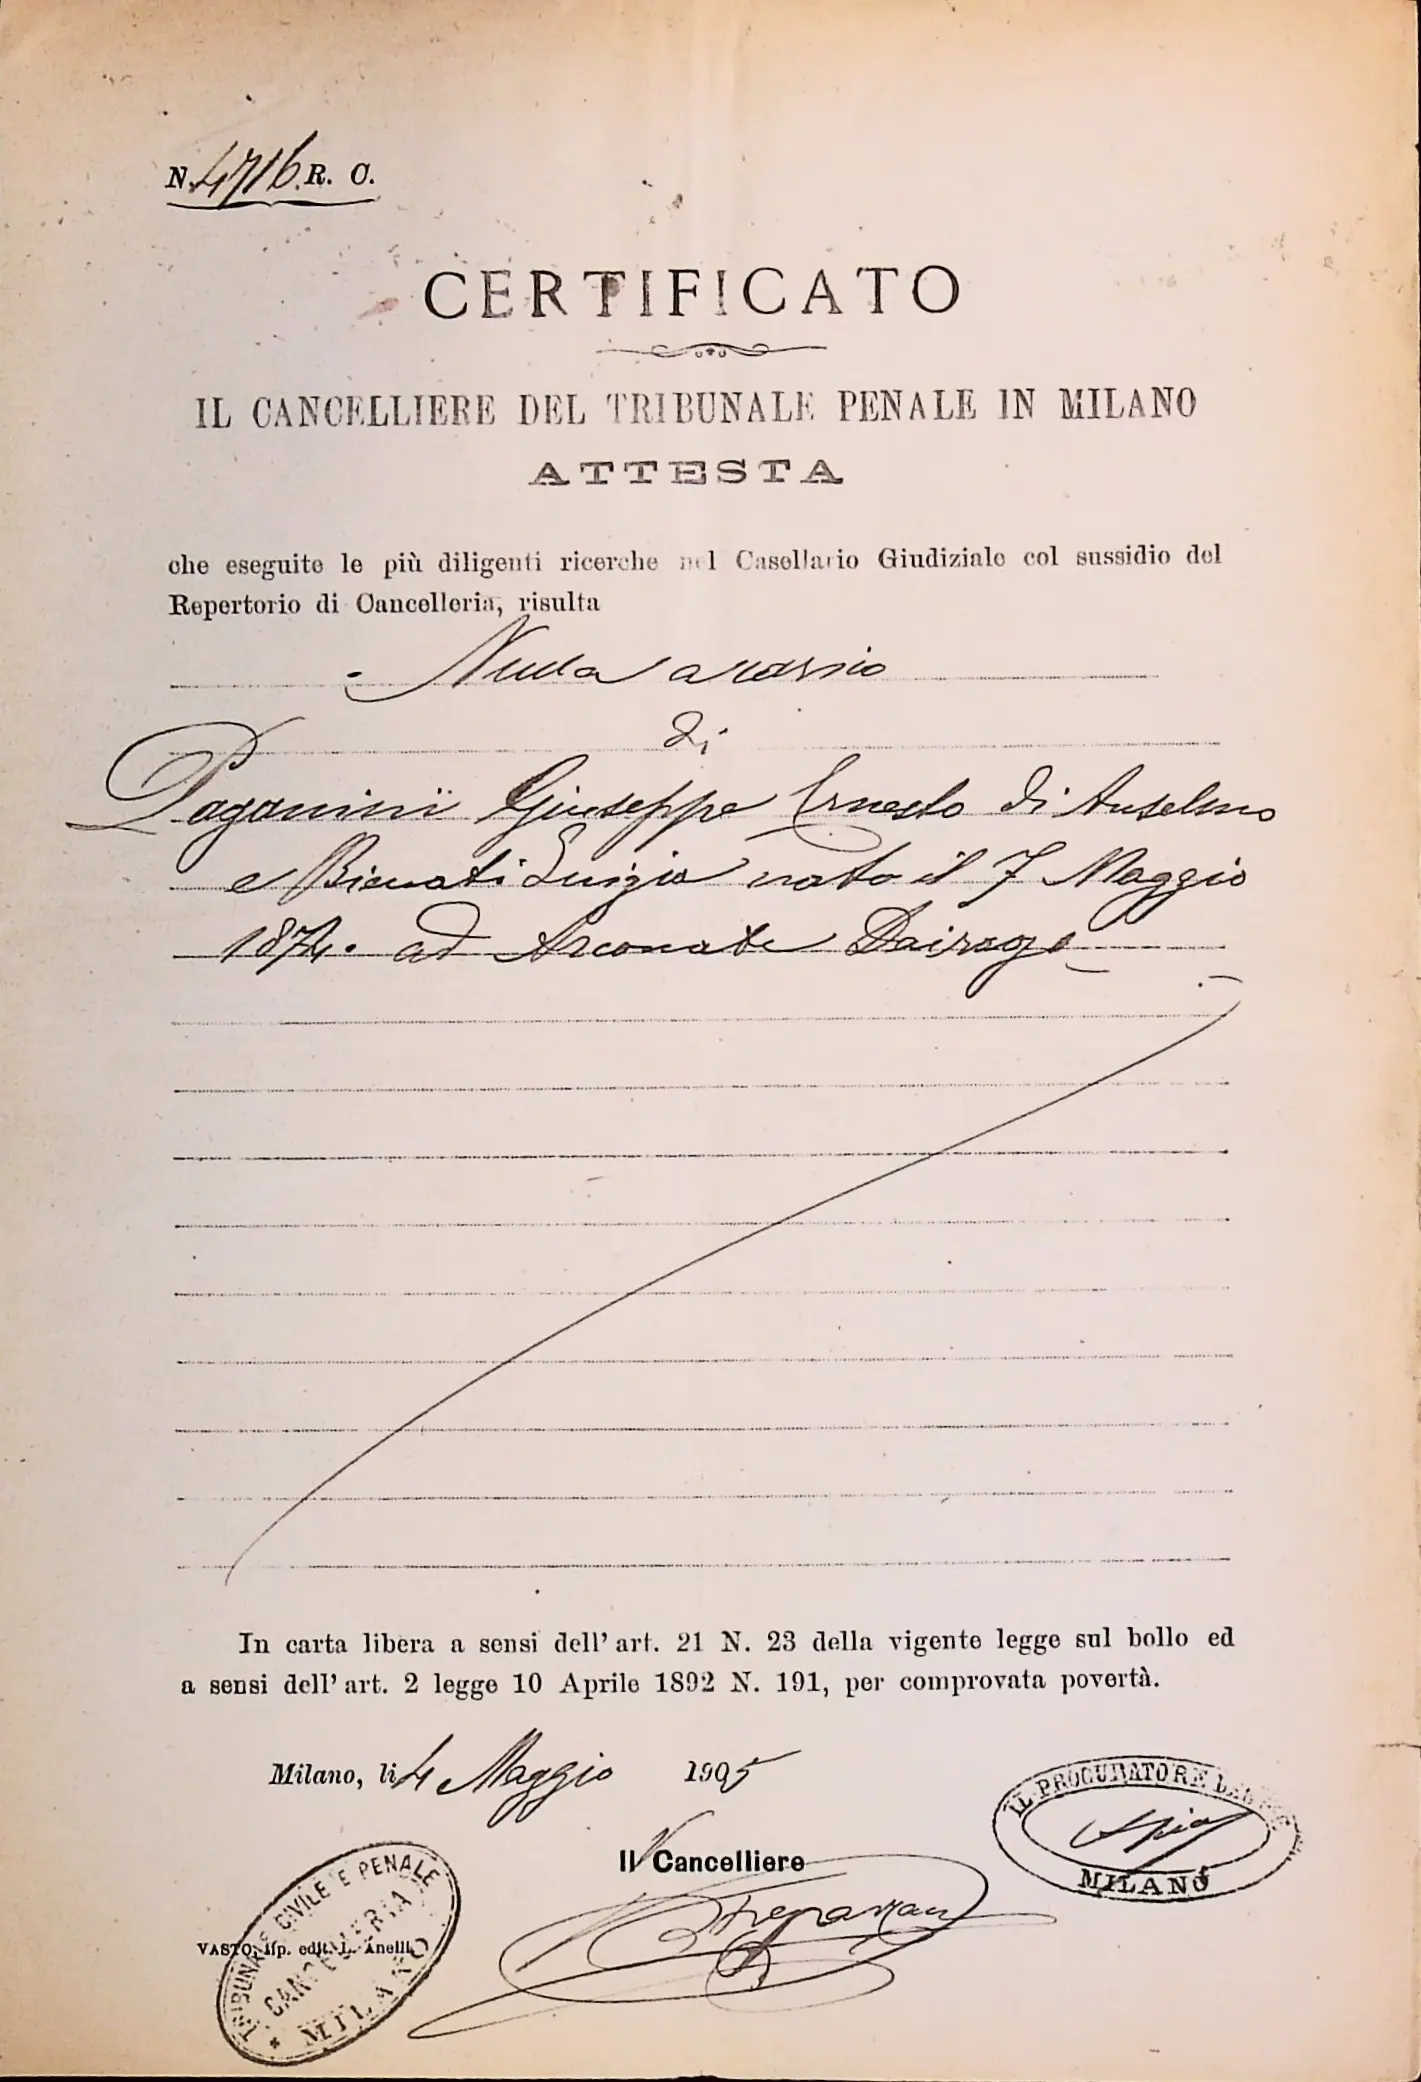 N. 4716 R. C.
CERTIFICATO
IL CANCELLIERE DEL TRIBUNALE PENALE IN MILANO
ATTESTA
che eseguite le più diligenti ricerche nel Casellario Giudiziale col sussidio del
Repertorio di Cancelleria, risulta
Nulla a carico
di
Paganini Giuseppe Ernesto di Anselmo
e Bienati Luigia nato il 7 Maggio
1874. ad Arconate Dairago
In carta libera a sensi dell' art. 21 N. 23 della vigente legge sul bollo ed
a sensi dell' art. 2 legge 10 Aprile 1892 N. 191, per comprovata povertà.
Milano, li 4 Maggio 1905
IL PROCURATORE
MILANO
Il V Cancelliere
TRIBUNALE CIVILE E PENALE
CANCELLERIA
MILANO
VASTO, Tip. edit. L. Anelli